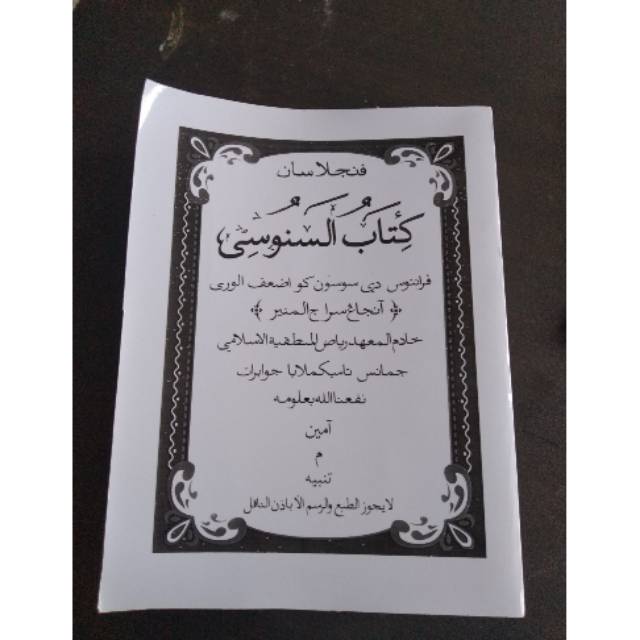 فنجلاسان
كِتَابُ السَنُوْسِى
فرانتوس دبى سوسون كو اضعف الورى
﴿ آنجاغ سراج المنير ﴾
خادم المعهد رياض المنطقية الاسلامي
جمانس تاسيكملايا جوابرات
نفعنا الله بعلومه
آمين
م
تنبيه
لايجوز الطبع والرسم الا باذن الناقل